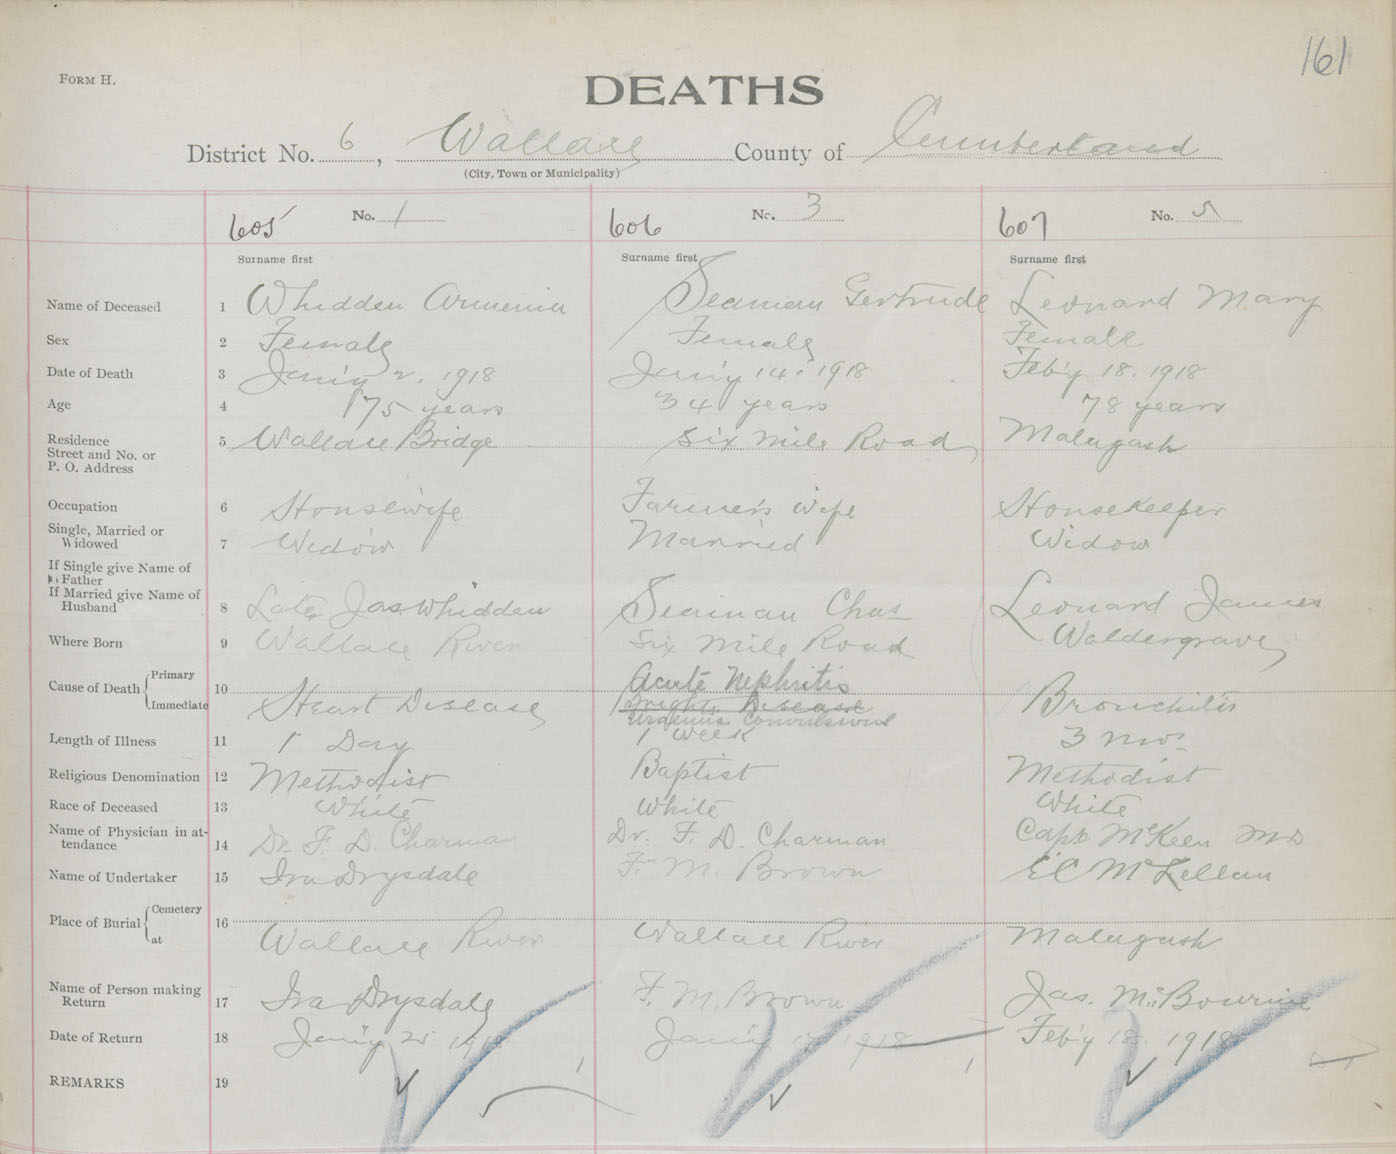 161
FORM H.
DEATHS
District No. 6, Wallace County of Cumberland
(City, Town or Municipality)
605 No. 1 606 No. 3 607 No. 5
Surname first Surname first Surname first
Name of Deceased 1 Whidden Armenia Seaman Gertrude Leonard Mary
Sex 2 Female Female Female
Date of Death 3 Jan'y 2, 1918 Jan'y 14, 1918 Feb'y 18, 1918
Age 4 75 years 34 years 78 years
Residence
Street and No. or
P. O. Address 5 Wallace Bridge Six Mile Road Malagash
Occupation 6 Housewife Farmer's wife Housekeeper
Single, Married or
Widowed 7 Widow Married Widow
If Single give Name of
Father
If Married give Name of
Husband 8 Late Jas Whidden Seaman Chas Leonard James
Where Born 9 Wallace River Six Mile Road Waldergrave
Cause of Death Primary 10 Acute Nephritis
Immediate Heart Disease Brights Disease Bronchitis
Uraemic Convulsions
Length of Illness 11 1 Day 1 week 3 mos
Religious Denomination 12 Methodist Baptist Methodist
Race of Deceased 13 White White White
Name of Physician in at-
tendance 14 Dr. F. D. Charman Dr. F. D. Charman Capt McKeen MD
Name of Undertaker 15 Ira Drysdale F. M. Brown
Place of Burial Cemetery 16
at Wallace River Wallace River Malagash
Name of Person making
Return 17 Ira Drysdale F. M. Brown Jas.
Date of Return 18 Jan'y 1918 Jan'y 1918 Feb'y 18 1918
REMARKS 19